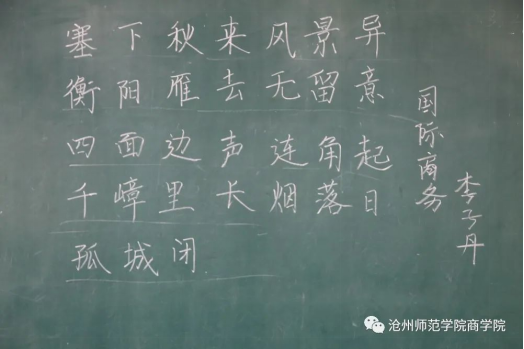 塞下秋来风景异
衡阳雁去无留意
四面边声连角起
千嶂里长烟落日
孤城闭
国际商务
李子丹
沧州师范学院商学院